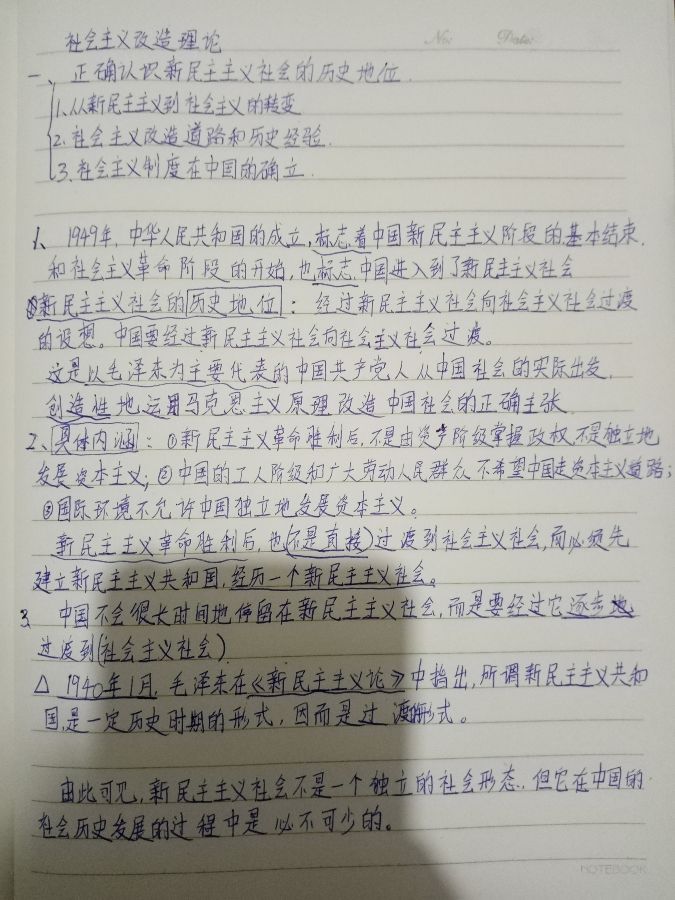 社会主义改造理论
No: Date:
一、正确认识新民主主义社会的历史地位.
1.从新民主主义到社会主义的转变
2.社会主义改造道路和历史经验.
3.社会主义制度在中国的确立.
1、1949年,中华人民共和国的成立,标志着中国新民主主义阶段的基本结束,
和社会主义革命阶段的开始,也标志中国进入到了新民主主义社会
①新民主主义社会的历史地位:经过新民主主义社会向社会主义社会过渡
的设想。中国要经过新民主主义社会向社会主义社会过渡。
这是以毛泽东为主要代表的中国共产党人从中国社会的实际出发,
创造性地运用马克思主义原理改造中国社会的正确主张.
2、具体内涵:①新民主主义革命胜利后,不是由资产阶级掌握政权,不是独立地
发展资本主义;②中国的工人阶级和广大劳动人民群众不希望中国走资本主义道路;
③国际环境不允许中国独立地发展资本主义。
新民主主义革命胜利后,也(不是直接)过渡到社会主义社会,而必须先
建立新民主主义共和国,经历一个新民主主义社会。
3.中国不会很长时间地停留在新民主主义社会,而是要经过它逐步地
过渡到(社会主义社会)
△1940年1月,毛泽东在《新民主主义论》中指出,所谓新民主主义共和
国,是一定历史时期的形式,因而是过渡的形式。
由此可见,新民主主义社会不是一个独立的社会形态.但它在中国的
社会历史发展的过程中是必不可少的。
NOTEBOOK